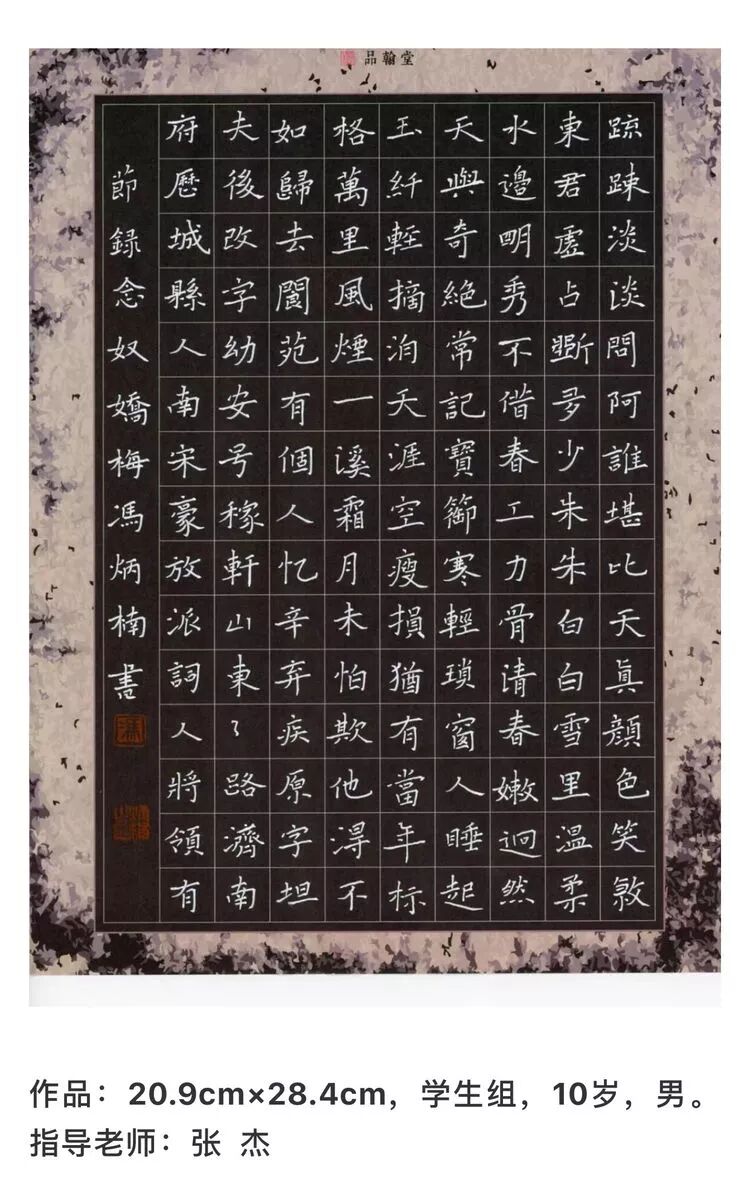 品翰堂
疏疎淡淡問阿誰堪比天真顔色笑煞
東君虛占斷多少朱朱白白雪里溫柔
水邊明秀不借春工力骨清春嫩迥然
天與奇絕常記寶篽寒輕瑣窗人睡起
玉纤輕摘泊天涯空瘦損猶有當年标
格萬里風煙一溪霜月未怕欺他得不
如歸去閬苑有個人忆辛弃疾原字坦
夫後改字幼安号稼軒山東了路濟南
府歷城縣人南宋豪放派詞人將領有
節録念奴嬌梅馮炳楠書
作品：20.9cm×28.4cm，学生组，10岁，男。
指导老师：张 杰